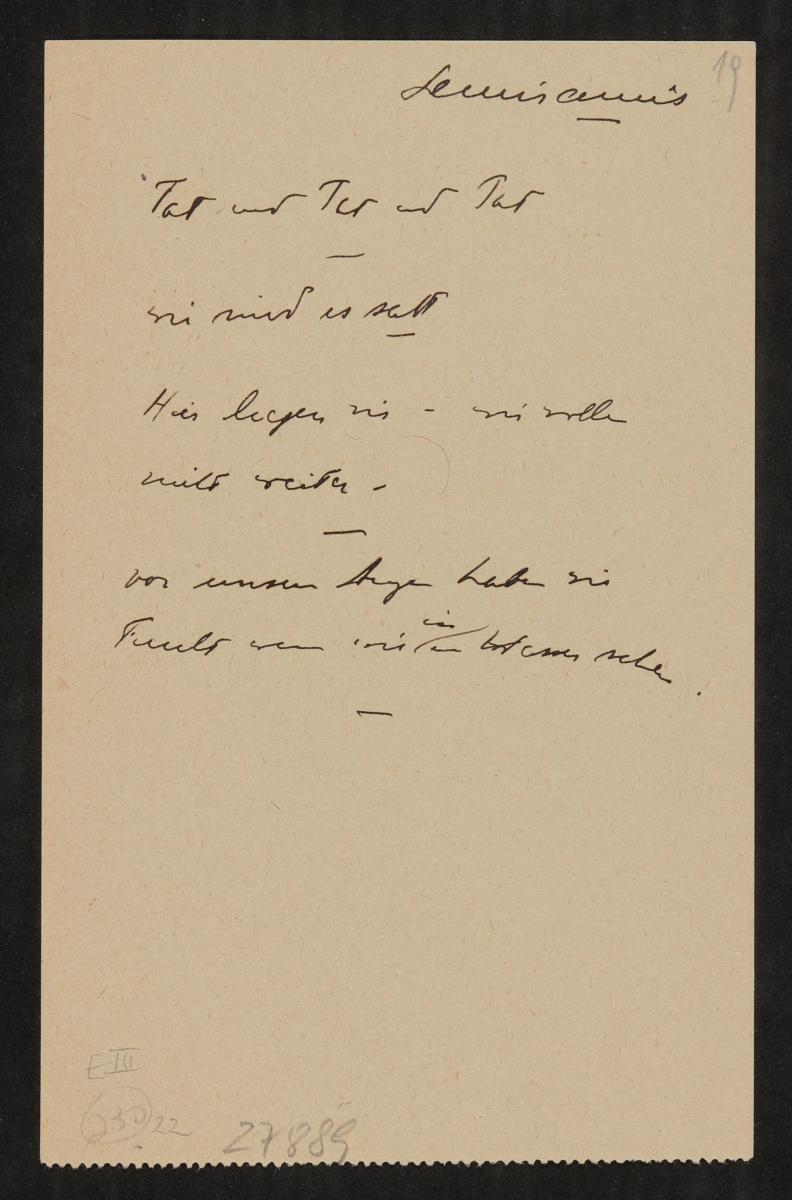 Semiramis
19
Tat und Tat und Tat
wir sind es satt
Hier liegen wir - wir wollen
nicht weiter -
vor unseren Augen haben wir
Furcht wenn wir in Wasser sehen.
in
E III
22
27889